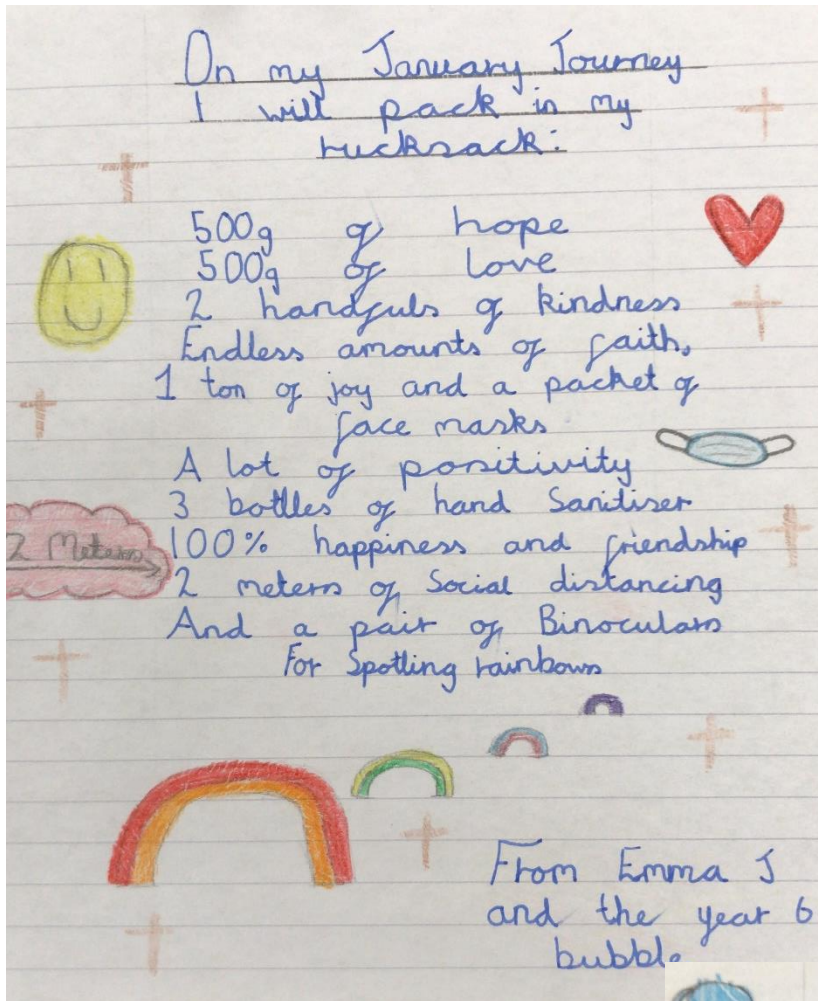 On my January Journey
I will pack in my
rucksack:
500g of hope
500g of love
2 handfuls of kindness
Endless amounts of faith,
1 ton of joy and a packet of
face masks
A lot of positivity
3 bottles of hand Sanitiser
2 Meters
100% happiness and friendship
2 meters of Social distancing
And a pair of Binoculars
For Spotting rainbows
From Emma J
and the year 6
bubble